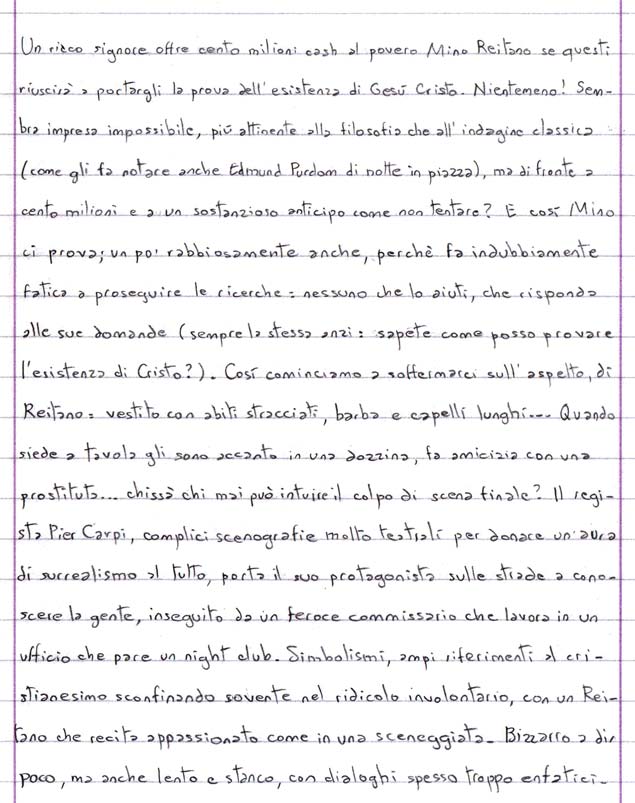 Un ricco signore offre cento milioni cash al povero Mino Reitano se questi
riuscirà a portargli la prova dell'esistenza di Gesù Cristo. Nientemeno! Sem-
bra impresa impossibile, più attinente alla filosofia che all'indagine classica
(come gli fa notare anche Edmund Purdom di notte in piazza), ma di fronte a
cento milioni e a un sostanzioso anticipo come non tentare? E così Mino
ci prova; un po' rabbiosamente anche, perchè fa indubbiamente
fatica a proseguire le ricerche: nessuno che lo aiuti, che risponda
alle sue domande (sempre la stessa anzi: sapete come posso provare
l'esistenza di Cristo?). Così cominciamo a soffermarci sull'aspetto, di
Reitano: vestito con abiti stracciati, barba e capelli lunghi... Quando
siede a tavola gli sono accanto in una dozzina, fa amicizia con una
prostituta... chissà chi mai può intuire il colpo di scena finale? Il regi-
sta Pier Carpi, complici scenografie molto teatrali per donare un'aura
di surrealismo al tutto, porta il suo protagonista sulle strade a cono-
scere la gente, inseguito da un feroce commissario che lavora in un
ufficio che pare un night club. Simbolismi, ampi riferimenti al cri-
stianesimo sconfinando sovente nel ridicolo involontario, con un Rei-
tano che recita appassionato come in una sceneggiata. Bizzarro a dir
poco, ma anche lento e stanco, con dialoghi spesso troppo enfatici.